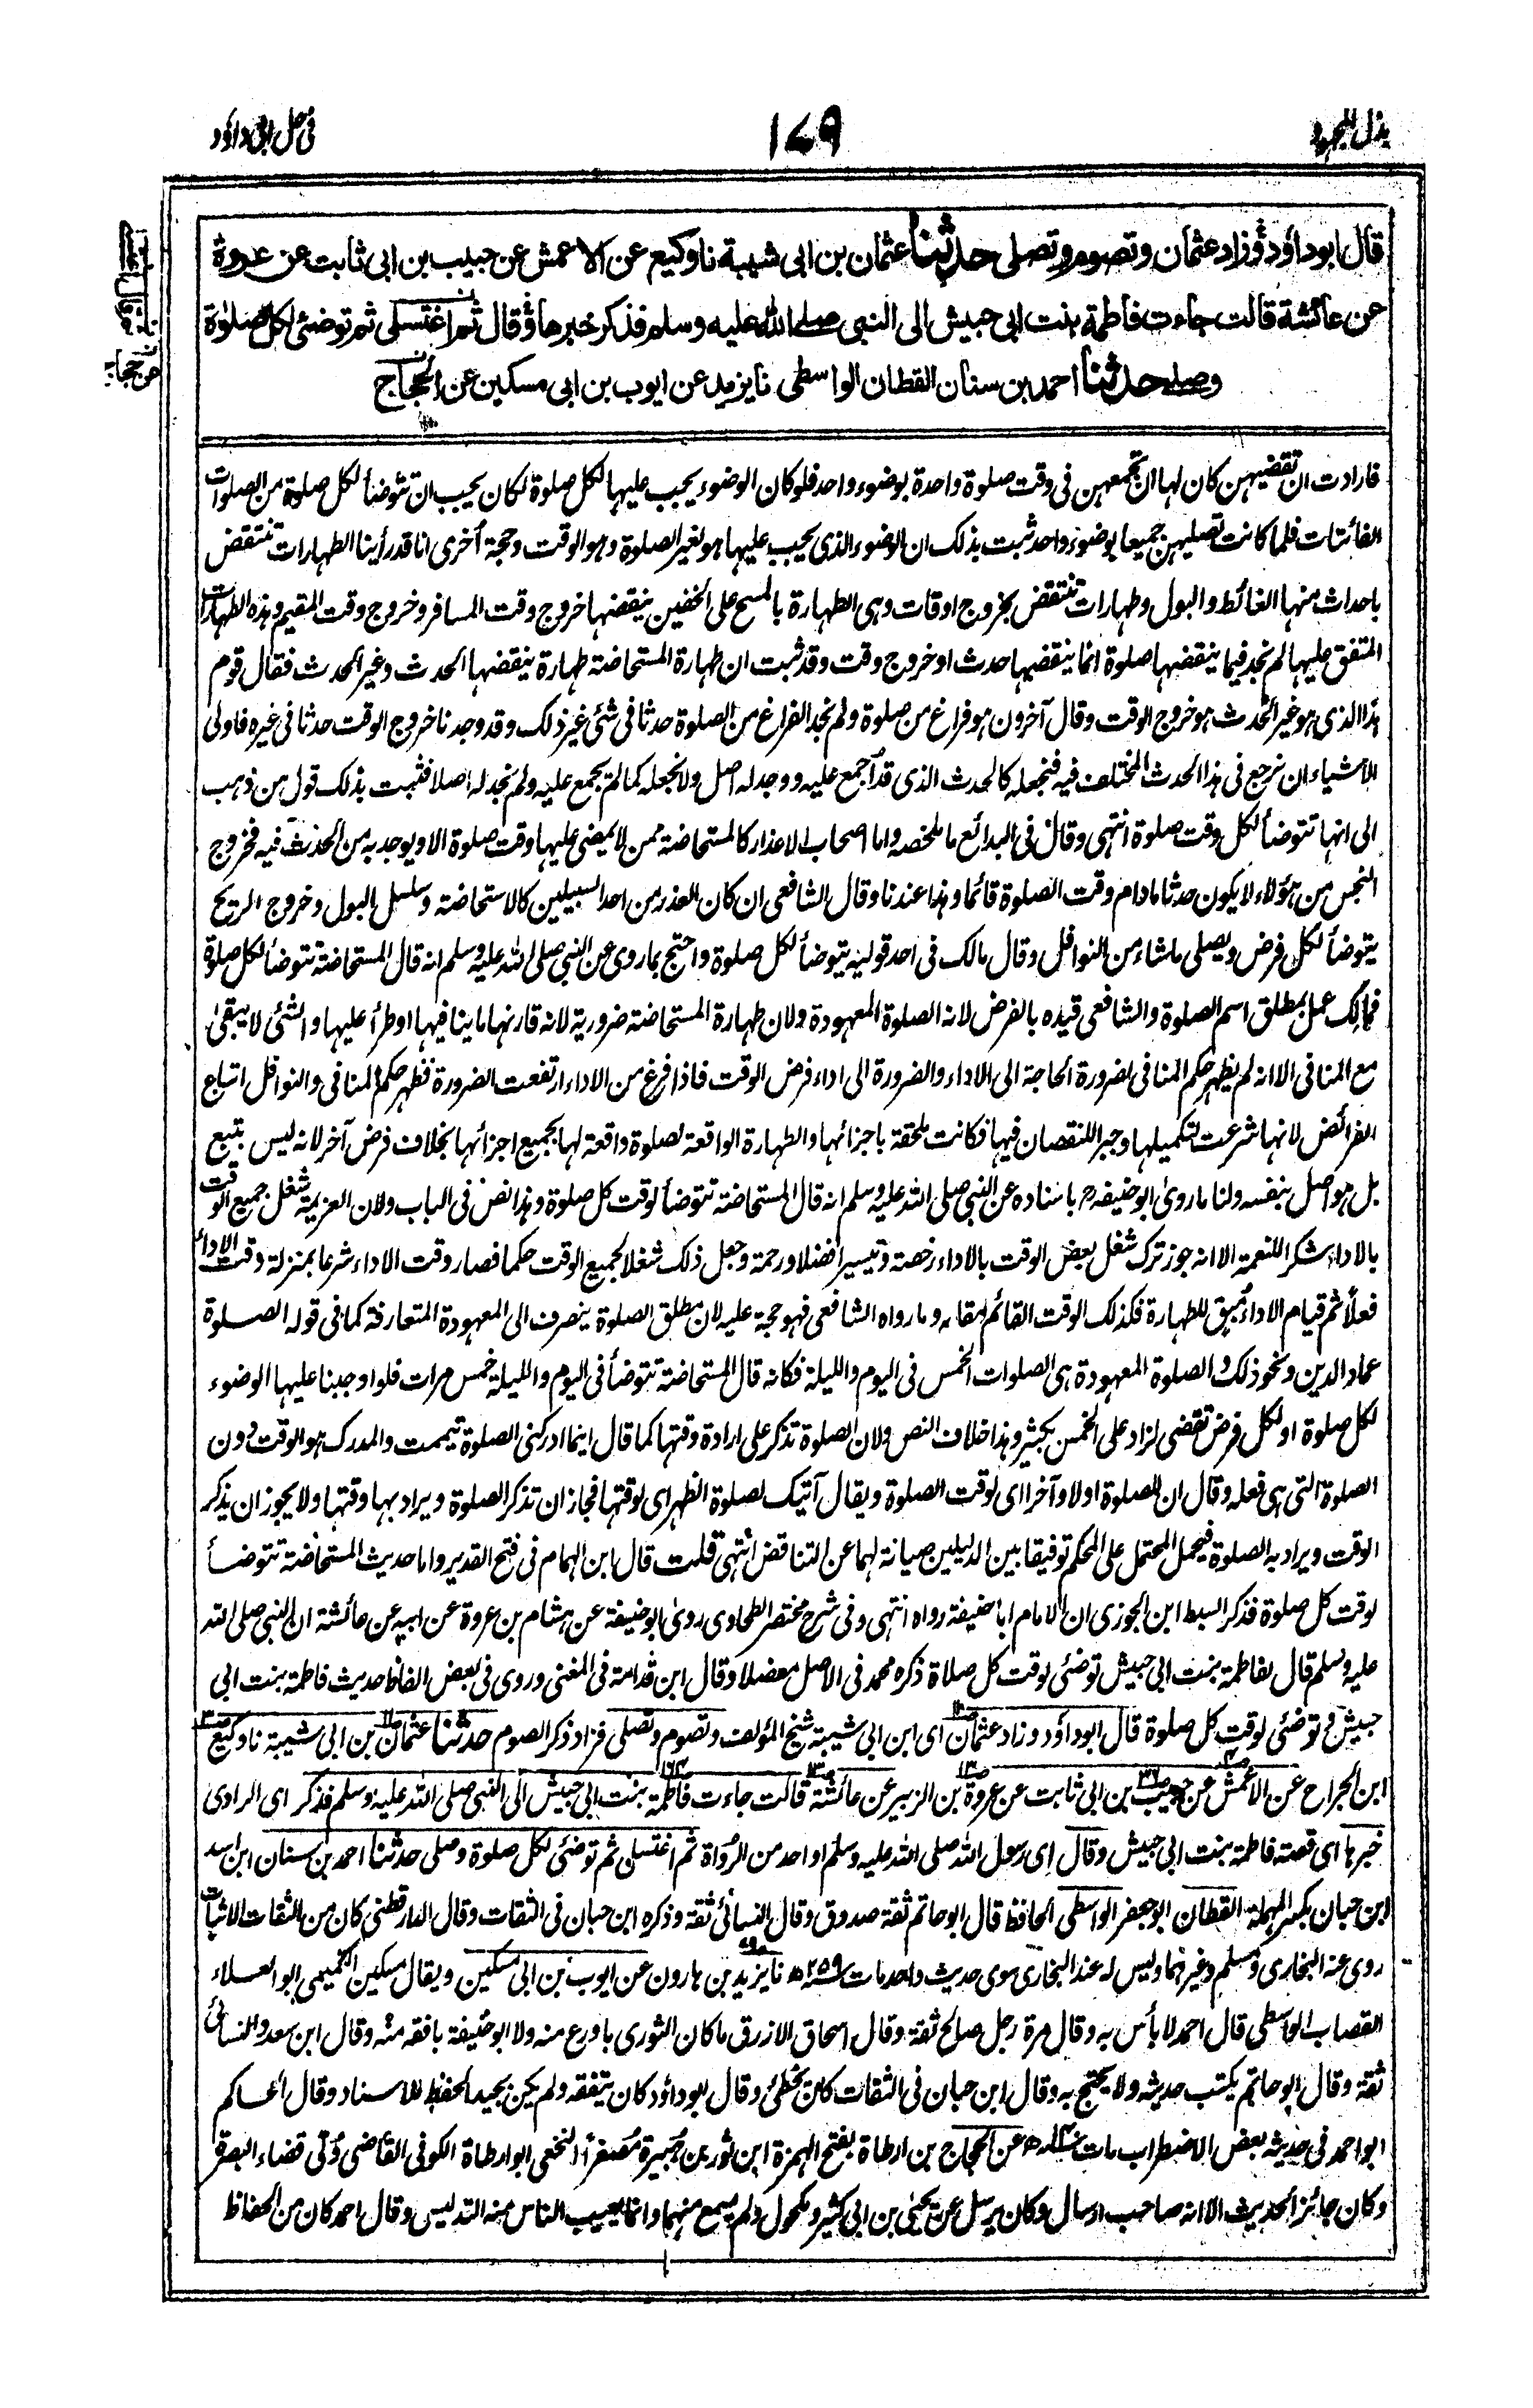 بذل المجهود
١٧٩
فی حل ابی داؤد
قال ابوداؤد وزاد عثمان وتصوم وتصلی حدثنا عثمان بن ابی شیبة نا وکیع عن الاعمش عن حبیب بن ابی ثابت عن عروة
عن عائشة قالت جاءت فاطمة بنت ابی حبیش الی النبی صلی الله علیه وسلم فذکر خبرها وقال ثم اغتسلی ثم توضئی لکل صلوة
وصلی حدثنا احمد بن سنان القطان الواسطی نا یزید عن ایوب بن ابی مسکین عن الحجاج
فارادت ان تقضیهن کان لها ان تجمعهن فی وقت صلوة واحدة بوضوء واحد فلو کان الوضوء یجب علیها لکل صلوة لکان یجب ان تتوضأ لکل صلوة من الصلوات
الفائتات فلما کانت تصلیهن جمیعا بوضوء واحد ثبت بذلک ان الوضوء الذی یجب علیها هو لغیر الصلوة وهو الوقت وحجة أخری انا قد رأینا الطهارات تنتقض
باحداث منها الغائط والبول وطهارات تنتقض بخروج اوقات وهی الطهارة بالمسح علی الخفین ینقضها خروج وقت المسافر وخروج وقت المقیم وهذه الطهارات
المتفق علیها لم نجد فیما ینقضها صلوة انما ینقضها حدث او خروج وقت وقد ثبت ان طهارة المستحاضة طهارة ینقضها الحدث وغیر الحدث فقال قوم
هذا الذی هو غیر الحدث هو خروج الوقت وقال آخرون هو فراغ من صلوة ولم نجد الفراغ من الصلوة حدثا فی شئ غیر ذلک وقد وجدنا خروج الوقت حدثا فی غیره فاولی
الاشیاء ان نرجع فی هذا الحدث المختلف فیه فنجعله کالحدث الذی قد أجمع علیه ووجد له اصل ولا نجعله کما لم یجمع علیه ولم نجد له اصلا فثبت بذلک قول من ذهب
الی انها تتوضأ لکل وقت صلوة انتهی وقال فی البدائع ما ملخصه واما اصحاب الاعذار کالمستحاضة ممن لا یمضی علیها وقت صلوة الا ویوجد به من الحدث فیه فخروج
النجس من هؤلاء لا یکون حدثا مادام وقت الصلوة قائما وهذا عندنا وقال الشافعی ان کان العذر من احد السبیلین کالاستحاضة وسلس البول وخروج الریح
یتوضأ لکل فرض ویصلی ماشاء من النوافل وقال مالک فی احد قولیه یتوضأ لکل صلوة واحتج بما روی عن النبی صلی الله علیه وسلم انه قال المستحاضة تتوضأ لکل صلوة
فمالک عمل بمطلق اسم الصلوة والشافعی قیده بالفرض لانه الصلوة المعهودة ولان طهارة المستحاضة ضروریة لانه قارنها ما ینافیها اوطرأ علیها والشئ لا یبقی
مع المنافی الا انه لم یظهر حکم المنافی لضرورة الحاجة الی الاداء والضرورة الی اداء فرض الوقت فاذا فرغ من الاداء ارتفعت الضرورة فظهر حکم المنافی والنوافل اتباع
الفرائض لانها شرعت لتکمیلها وجبرا للنقصان فیها فکانت ملحقة باجزائها والطهارة الواقعة لصلوة واقعة لها بجمیع اجزائها بخلاف فرض آخر لانه لیس بتبع
بل هو اصل بنفسه ولنا ما روی ابوحنیفة رح باسناده عن النبی صلی الله علیه وسلم انه قال المستحاضة تتوضأ لوقت کل صلوة وهذا نص فی الباب ولان العزیمة شغل جمیع الوقت
بالاداء شکرا للنعمة الا انه جوز ترک شغل بعض الوقت بالاداء رخصة وتیسیرا فضلا ورحمة وجعل ذلک شغلا لجمیع الوقت حکما فصار وقت الاداء شرعا بمنزلة وقت الاداء
فعلا ثم قیام الاداء مبق للطهارة فکذلک الوقت القائم مقامه وما رواه الشافعی فهو حجة علیه لان مطلق الصلوة ینصرف الی المعهودة المتعارفة کما فی قوله الصلوة
عماد الدین ونحو ذلک والصلوة المعهودة هی الصلوات الخمس فی الیوم واللیلة فکانه قال المستحاضة تتوضأ فی الیوم واللیلة خمس مرات فلو اوجبنا علیها الوضوء
لکل صلوة او لکل فرض تقضی لزاد علی الخمس بکثیر وهذا خلاف النص ولان الصلوة تذکر علی ارادة وقتها کما قال اینما ادرکتنی الصلوة تیممت والمدرک هو الوقت دون
الصلوة التی هی فعله وقال ان للصلوة اولا وآخرا ای لوقت الصلوة ویقال آتیک لصلوة الظهر ای لوقتها فجاز ان تذکر الصلوة ویراد بها وقتها ولا یجوز ان یذکر
الوقت ویراد به الصلوة فیحمل المحتمل علی المحکم توفیقا بین الدلیلین صیانة لهما عن التناقض انتهی قلت قال ابن الهمام فی فتح القدیر واما حدیث المستحاضة تتوضأ
لوقت کل صلوة فذکر السبط ابن الجوزی ان الامام ابا حنیفة رواه انتهی وفی شرح مختصر الطحاوی روی ابوحنیفة عن هشام بن عروة عن ابیه عن عائشة ان النبی صلی الله
علیه وسلم قال لفاطمة بنت ابی حبیش توضئی لوقت کل صلاة ذکره محمد فی الاصل معضلا وقال ابن قدامة فی المغنی وروی فی بعض الفاظ حدیث فاطمة بنت ابی
حبیش وتوضئی لوقت کل صلوة قال ابوداؤد وزاد عثمان ای ابن ابی شیبة شیخ المؤلف وتصوم وتصلی فزاد ذکر الصوم حدثنا عثمان بن ابی شیبة نا وکیع
ابن الجراح عن الاعمش عن حبیب بن ابی ثابت عن عروة بن الزبیر عن عائشة قالت جاءت فاطمة بنت ابی حبیش الی النبی صلی الله علیه وسلم فذکر ای الراوی
خبرها ای قصة فاطمة بنت ابی حبیش وقال ای رسول الله صلی الله علیه وسلم او احد من الرواة ثم اغتسلی ثم توضئی لکل صلوة وصلی حدثنا احمد بن سنان ابن اسد
ابن حبان بکسر المهملة القطان ابوجعفر الواسطی الحافظ قال ابوحاتم ثقة صدوق وقال النسائی ثقة وذکره ابن حبان فی الثقات وقال الدارقطنی کان من الثقات الاثبات
روی عنه البخاری ومسلم وغیرهما ولیس له عند البخاری سوی حدیث واحد مات سنة ٢٥٩ه نا یزید بن هارون عن ایوب بن ابی مسکین ویقال مسکین التمیمی ابو العلاء
القصاب الواسطی قال احمد لا بأس به وقال مرة رجل صالح ثقة وقال اسحاق الازرق ما کان الثوری باورع منه ولا ابوحنیفة بافقه منه وقال ابن سعد والنسائی
ثقة وقال ابوحاتم یکتب حدیثه ولا یحتج به وقال ابن حبان فی الثقات کان یخطئ وقال ابوداؤد کان یتفقه ولم یکن بجید الحفظ للاسناد وقال الحاکم
ابو احمد فی حدیثه بعض الاضطراب مات عن الحجاج بن ارطاة بفتح الهمزة ابن ثور بن هبیرة مصغرا النخعی ابو ارطاة الکوفی القاضی ولی قضاء البصرة
وکان جائز الحدیث الا انه صاحب ارسال وکان یرسل عن یحیی بن ابی کثیر ومکحول ولم یسمع منهما وانما یعیب الناس منه التدلیس وقال احمد کان من الحفاظ